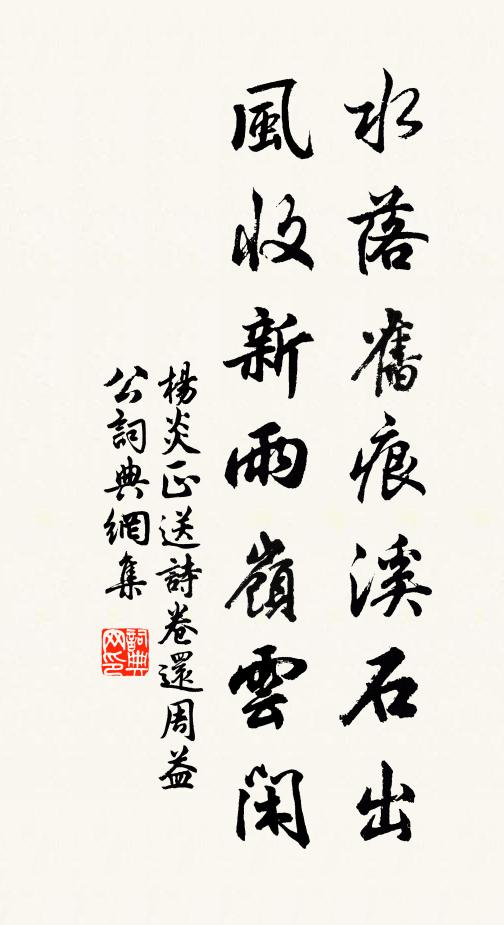 水落舊痕溪石出
風收新雨嶺雲閑
楊炎正送詩卷還周益
公詞典網集
詞典网印